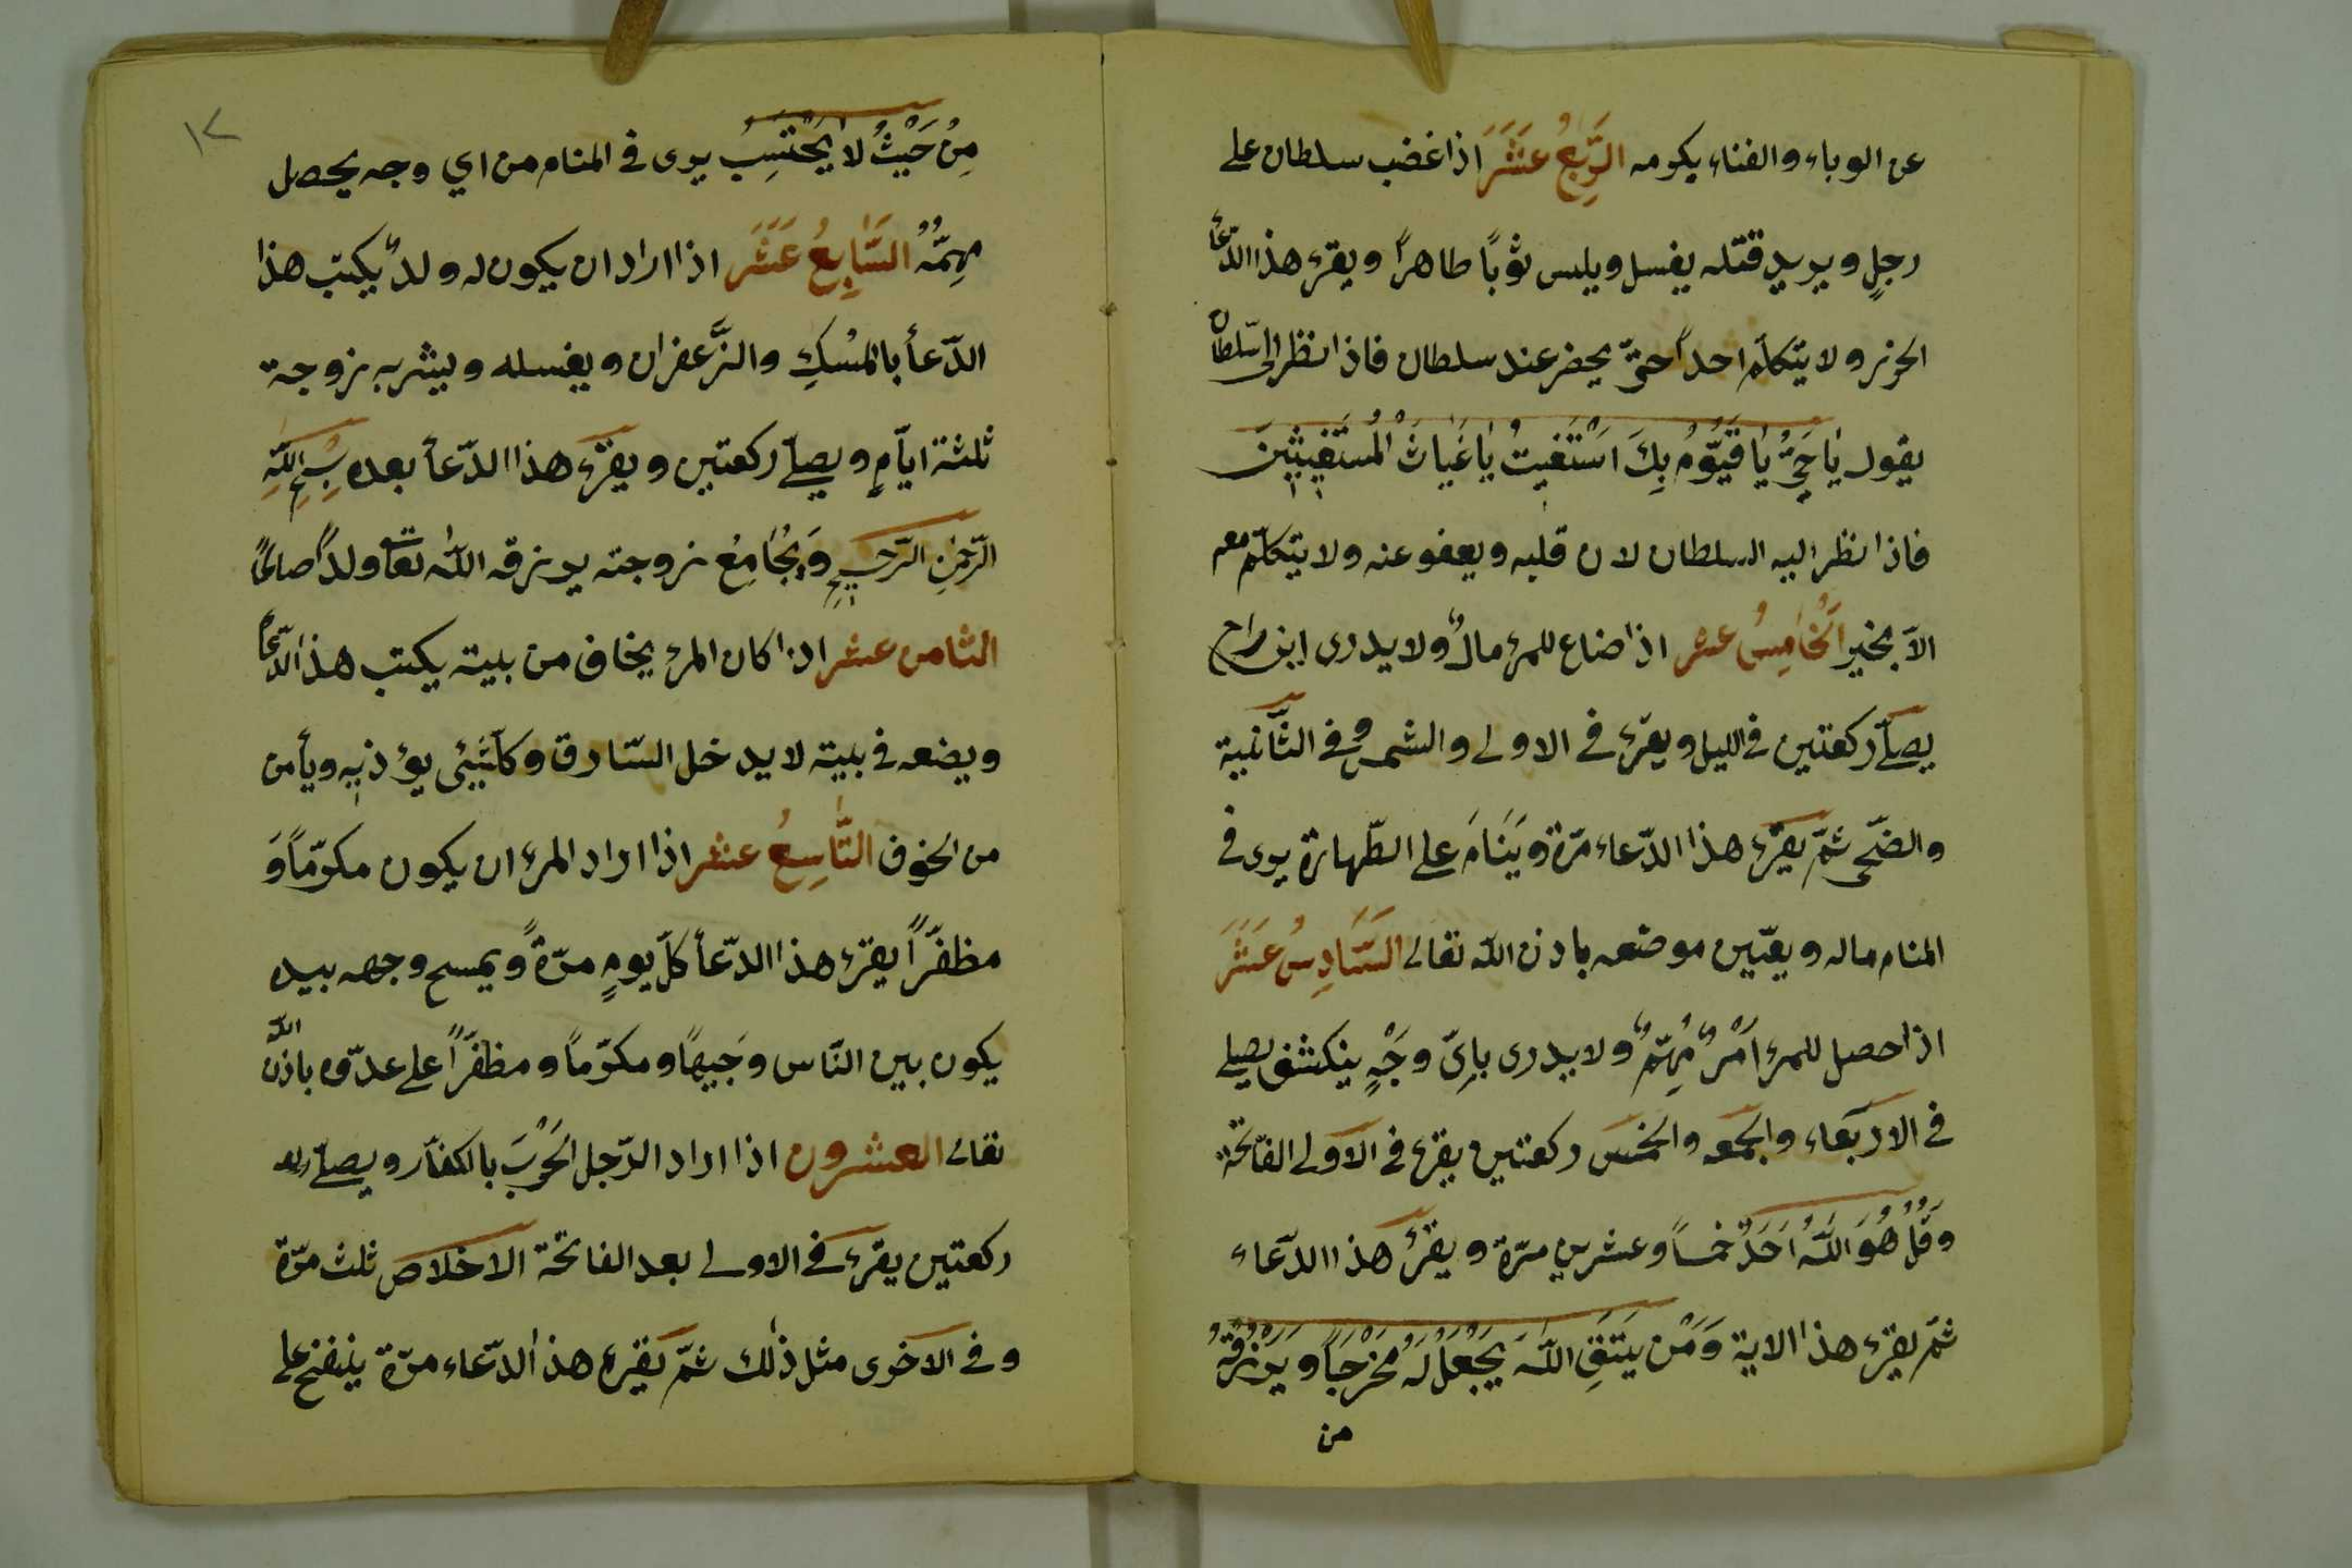 عن الوباء والفناء بكرمه الرَّبِعُ عَشَرَ اذا غضب سلطان على
رجلٍ ويريد قتله يغسل ويلبس ثوبًا طاهرًا ويقرء هذا الدّعأ
الحرز ولا يتكلّم احدًا حتّى يحضر عند سلطان فاذا نظر الى سّلطان
يقول يَا حَيُّ يَا قَيُّومُ بِكَ اَسْتَغيثُ يَا غَيَاثَ الْمُسْتَغِيثِينَ
فاذا نظر اليه السلطان لان قلبه ويعفو عنه ولا يتكلّم معه
الّا بخير اَلْخَامِسُ عشر اذا ضاع للمرء مالٌ ولا يدرى اين راح
يصلّى ركعتين فى الليل ويقرء فى الاولى والشمس وفى الثّانية
والضّحى ثمّ يقرء هذا الدّعاء مرّة وَيَنَامَ على الطّهارة يرى فى
المنام ماله ويعيّن موضعه باذن الله تعالى السَّادِسُ عَشَرَ
اذا حصل للمرء اَمْرٌ مُهِمٌّ ولا يدرى بِايّ وَجْهٍ ينكشف يصلى
فى الاربعاء والجمعه والخمس ركعتين يقرء فى الاولى الفاتحة
وَقُلْ هُوَ اللّٰهُ اَحَدٌ خمسًا وعشرين مرّة ويقرءُ هذا الدّعاء
ثمّ يقرء هذا الاية وَمَنْ يَتَّقِ اللّٰهَ يَجْعَلْ لَهُ مَخْرَجًا وَيَرْزُقْهُ
من
١٢
مِنْ حَيْثُ لَا يَحْتَسِبُ يرى فى المنام من اي وجه يحصل
مهِمّهُ السَّابِعُ عَشَر اذا اراد ان يكون له ولدٌ يكتب هذا
الدّعأ بالمسْكِ والزَّعفران ويغسله ويشربه زوجة
ثلثة ايّامٍ ويصلّى ركعتين ويقرء هذا الدّعأ بعده بِسْمِ اللّٰهِ
الرّحمٰنِ الرّحيمِ وَيُجَامِعُ زوجته يرزقه اللّٰه تعالى ولدًا صالحًا
الثامن عشر اذا كان المرء يخاف من بيته يكتب هذا الدّعأ
ويضعه فى بيته لا يدخل السّارق وكلّ شَيْئ يؤذيه ويأمن
من الخوف التّاسِعُ عشر اذا اراد المرء ان يكون مكرّمًا وَ
مظفّرًا يقرء هذا الدّعأ كلّ يومٍ مرّةً ويمسح وجهه بيده
يكون بين النّاس وَجيهًا ومكرّمًا ومظفّرًا على عدّوه باذن اللّٰه
تعالى العشرون اذا اراد الرّجل الحَرْبَ بالكفّار ويصلّى
ركعتين يقرء فى الاولى بعد الفاتحة الاخلاص ثلث مرّة
وفى الاخرى مثل ذٰلك ثمّ يقرء هذا الدّعاء مرّة ينفخ على